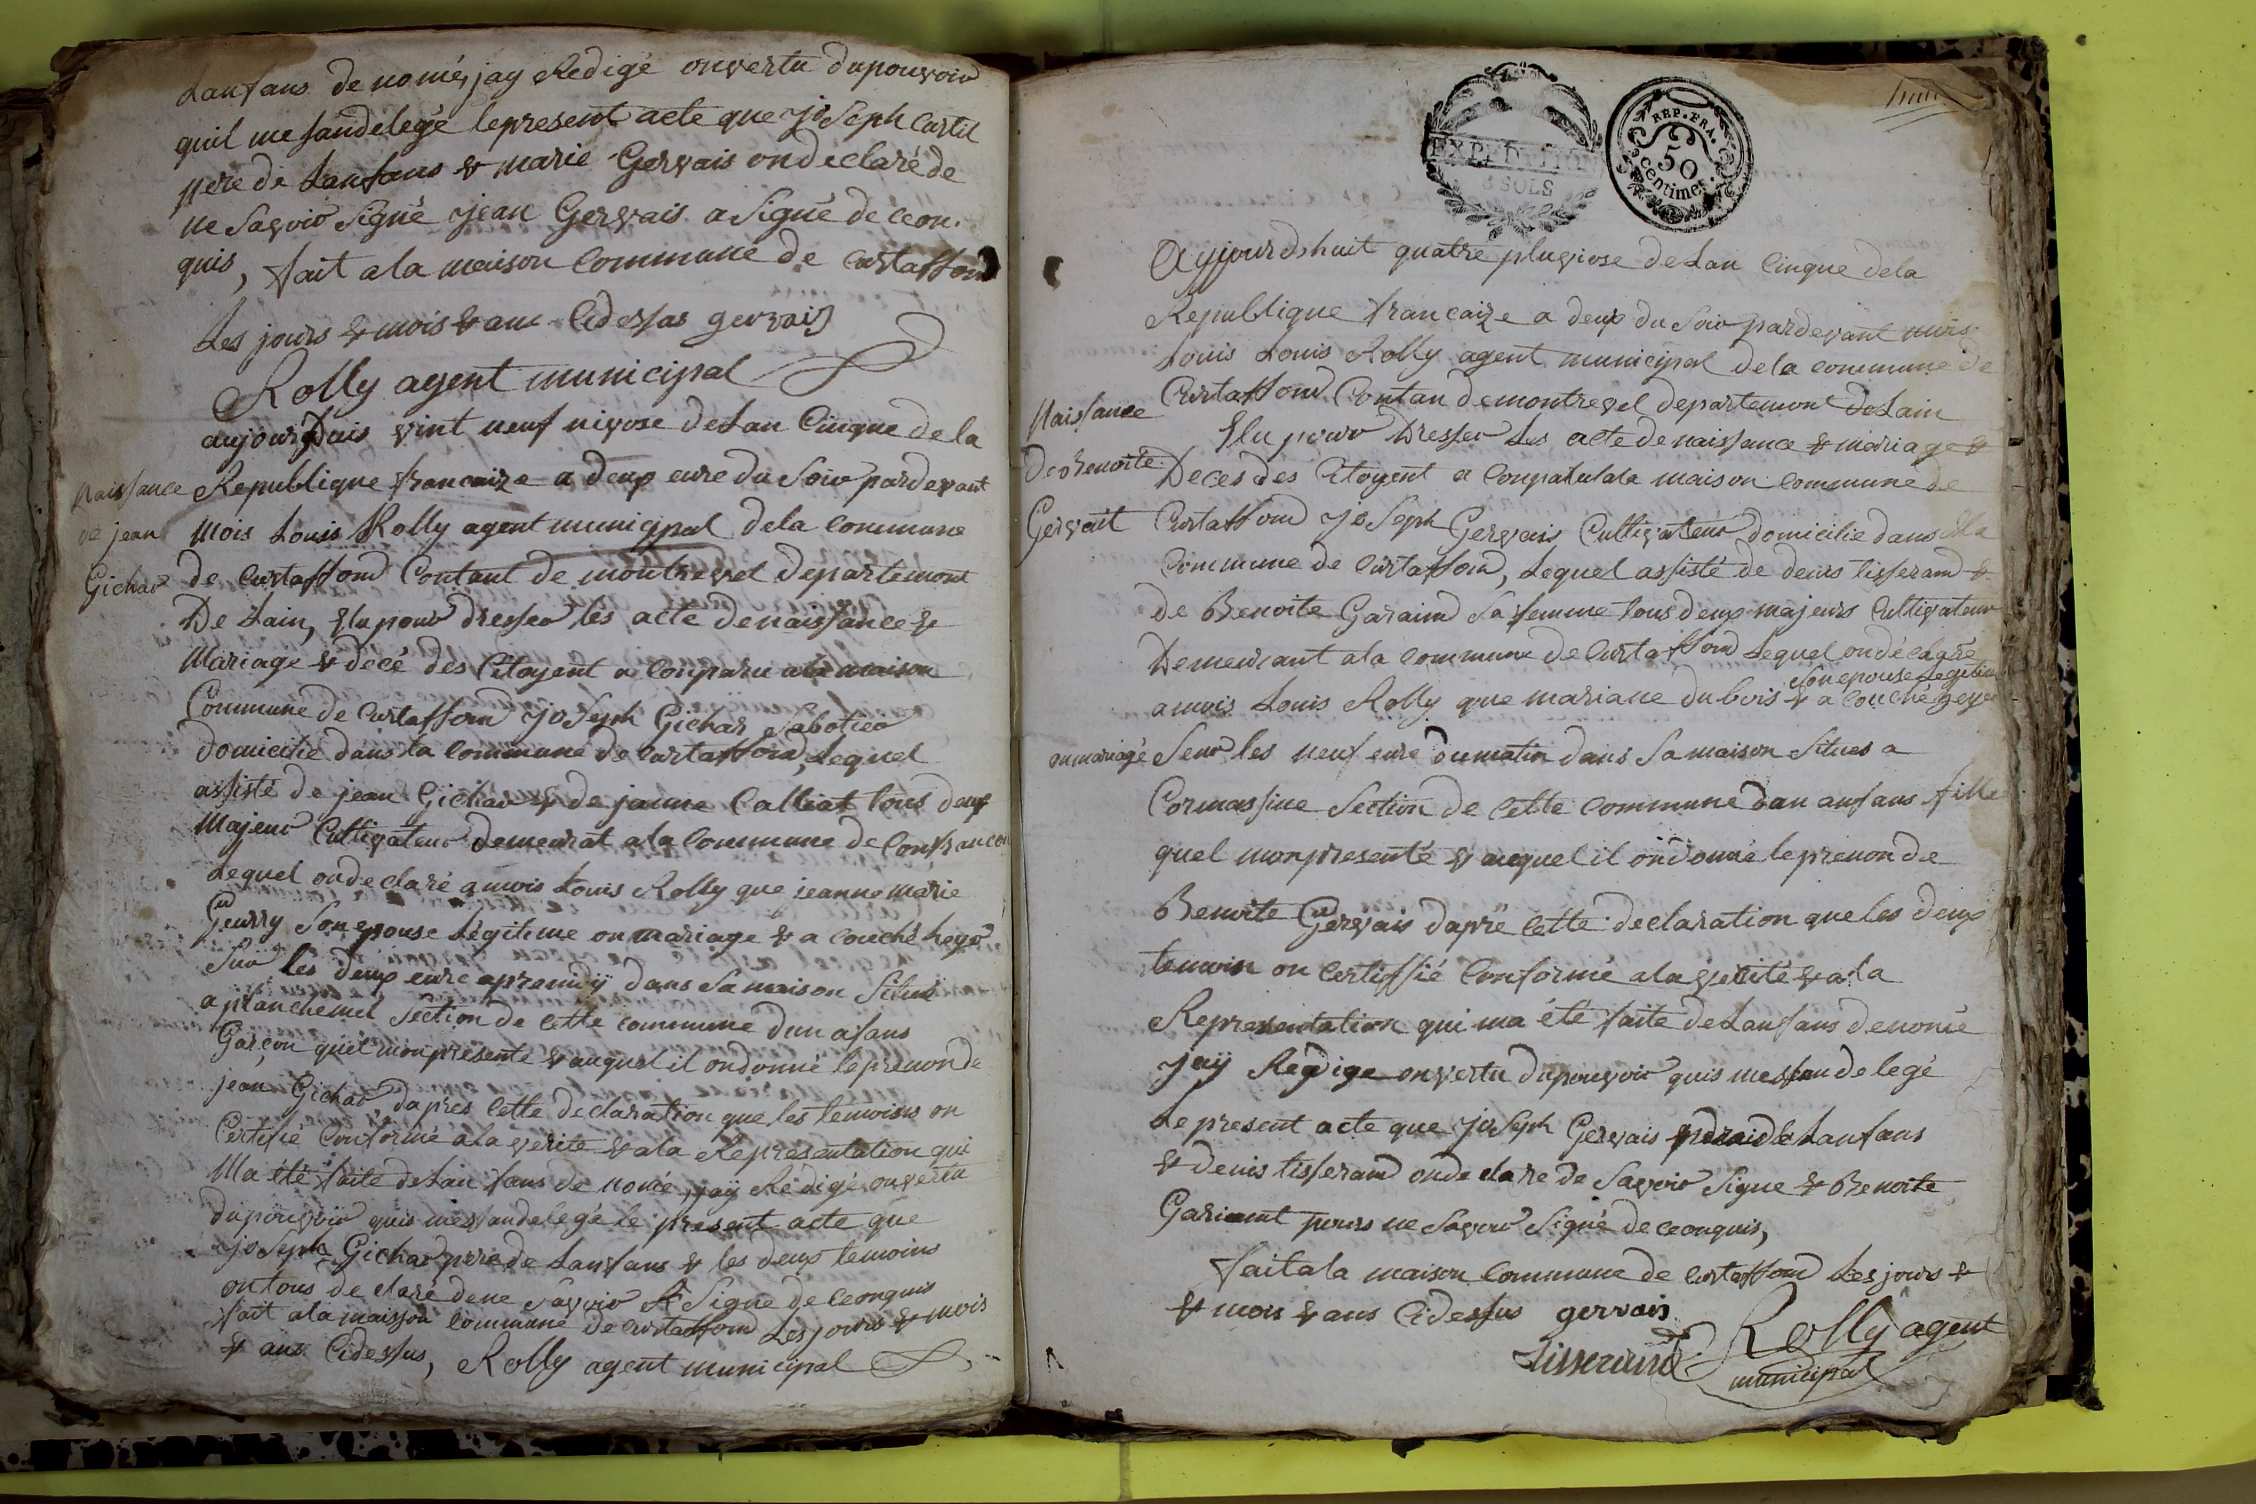 Lanfans de nomé, jay Redigé onvertu dupouvoir
quil me sandelegé lepresent acte que joSeph Curtil
pere de Lanfans & marie Gervais ondeclaré de
ne Savoir Signé jean Gervais a Signé de ceon
quis, fait ala maison Commune de Curtaffond
Les jours & mois & ans Cidessus gervais
Rolly agent municipal
aujourdhuis vint neuf nivose deLan Cinque de la
Republique francaize a deux eure du Soir pardevant
Mois Louis Rolly agent municipal dela Commune
de Curtaffond Contant de montrevel departement
De Lain, Elu pour dresser les acte denaissance &
Mariage & décé des Citoyent a Conparu ala maison
Commune de Curtaffond joSeph Gichar Sabotier
domicilié dans la Commune de Curtaffond, Lequel
assisté de jean Gichar & de janne Calliat tous deux
Majeur Cultivateur demeurat ala Commune de Confrancon
Lequel ondeclaré amois Louis Rolly que jeanne marie
Geurry Son epouse Légitime on mariage & a couché heyer
Sur les deux eure apremidÿ dans Sa maison Situé
a planchemel Section de Cette commune dun afans
Garçon quel monpresenté & auquel il ondonné leprenon de
jean Gichar, dapres Cette declaration que les temoisns on
Certifié Conforme ala verité & ala Representation qui
Ma été faite deLanfans de nomé, jaÿ Rédigé onvertu
dupouvoir quis messandelegé le present acte que
joSeph Gichar pere de Lanfans & les deux temoins
ontous declaré dene Savoir Signé de ceonquis
fait ala maison Commune de Curtaffond Les jours & mois
& ans Cidessus, Rolly agent municipal
Naissance
de jean
Gichar
Aujourdshuit quatre pluviose deLan Cinque dela
Republique francaize a deux du Soir pardevant mois
Louis Louis Rolly agent municipal dela commune de
Curtaffond Contan demontrevel departement deLain
Elu pour Dresser Les acte denaissance & mariage &
Deces des Citoyent a Conparu ala maison Commune de
Curtaffond joSeph Gervais Cultivateur domicilié dans La
Commune de Curtaffond, Lequel assisté de denis tisserand &
de Benoite Garaind Sa femme tous deux majeurs Cultivateur
Demeurant ala Commune de Curtaffond Lequel ondéclaré
Son epouse Legitime
amois Louis Rolly que mariane dubois & a couché heyer
onmariage Seur les neuf eure dumatin dans Sa maison Situes a
Cormassine Section de Cette Commune dan anfans fille
quel monpresenté & auquel il ondonné leprenon de
Benoite Gervais daprë Cette declaration que les deux
temoin on Certiffié Conforme ala verité & ala
Representation qui ma été faite deLanfans denomé
jaÿ Redige onvertu dupouvoir quis messandelegé
Le present acte que joSeph Gervais de Lanfans
& denis tisserand ondeclare de Savoir Signe & Benoite
Gariaint pours ne Savoir Signé de ceonquis,
fait ala maison Commune de Curtaffond Les jours &
& mois & ans Cidessus gervais
tisserand Rolly agent
municipal
Naissance
de Benoite
Gervait
EXPEDITION
8 SOLS
REP. FRA.
50
Centimes.